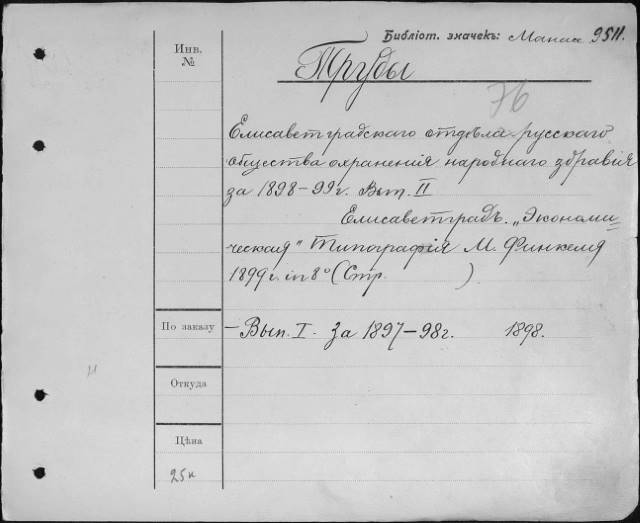 Библіот. значекъ: Манка 9511.
Инв.
№
Труды
76
Елисаветградскаго отдѣла русскаго
общества охраненія народнаго здравія
за 1898–99 г. Вып. II
Елисаветградъ. „Экономи-
ческая" типографія М. Финкеля
1899 г. in 8° (Стр. )
По заказу
– Вып. I. за 1897–98 г. 1898.
Откуда
Цѣна
25 к